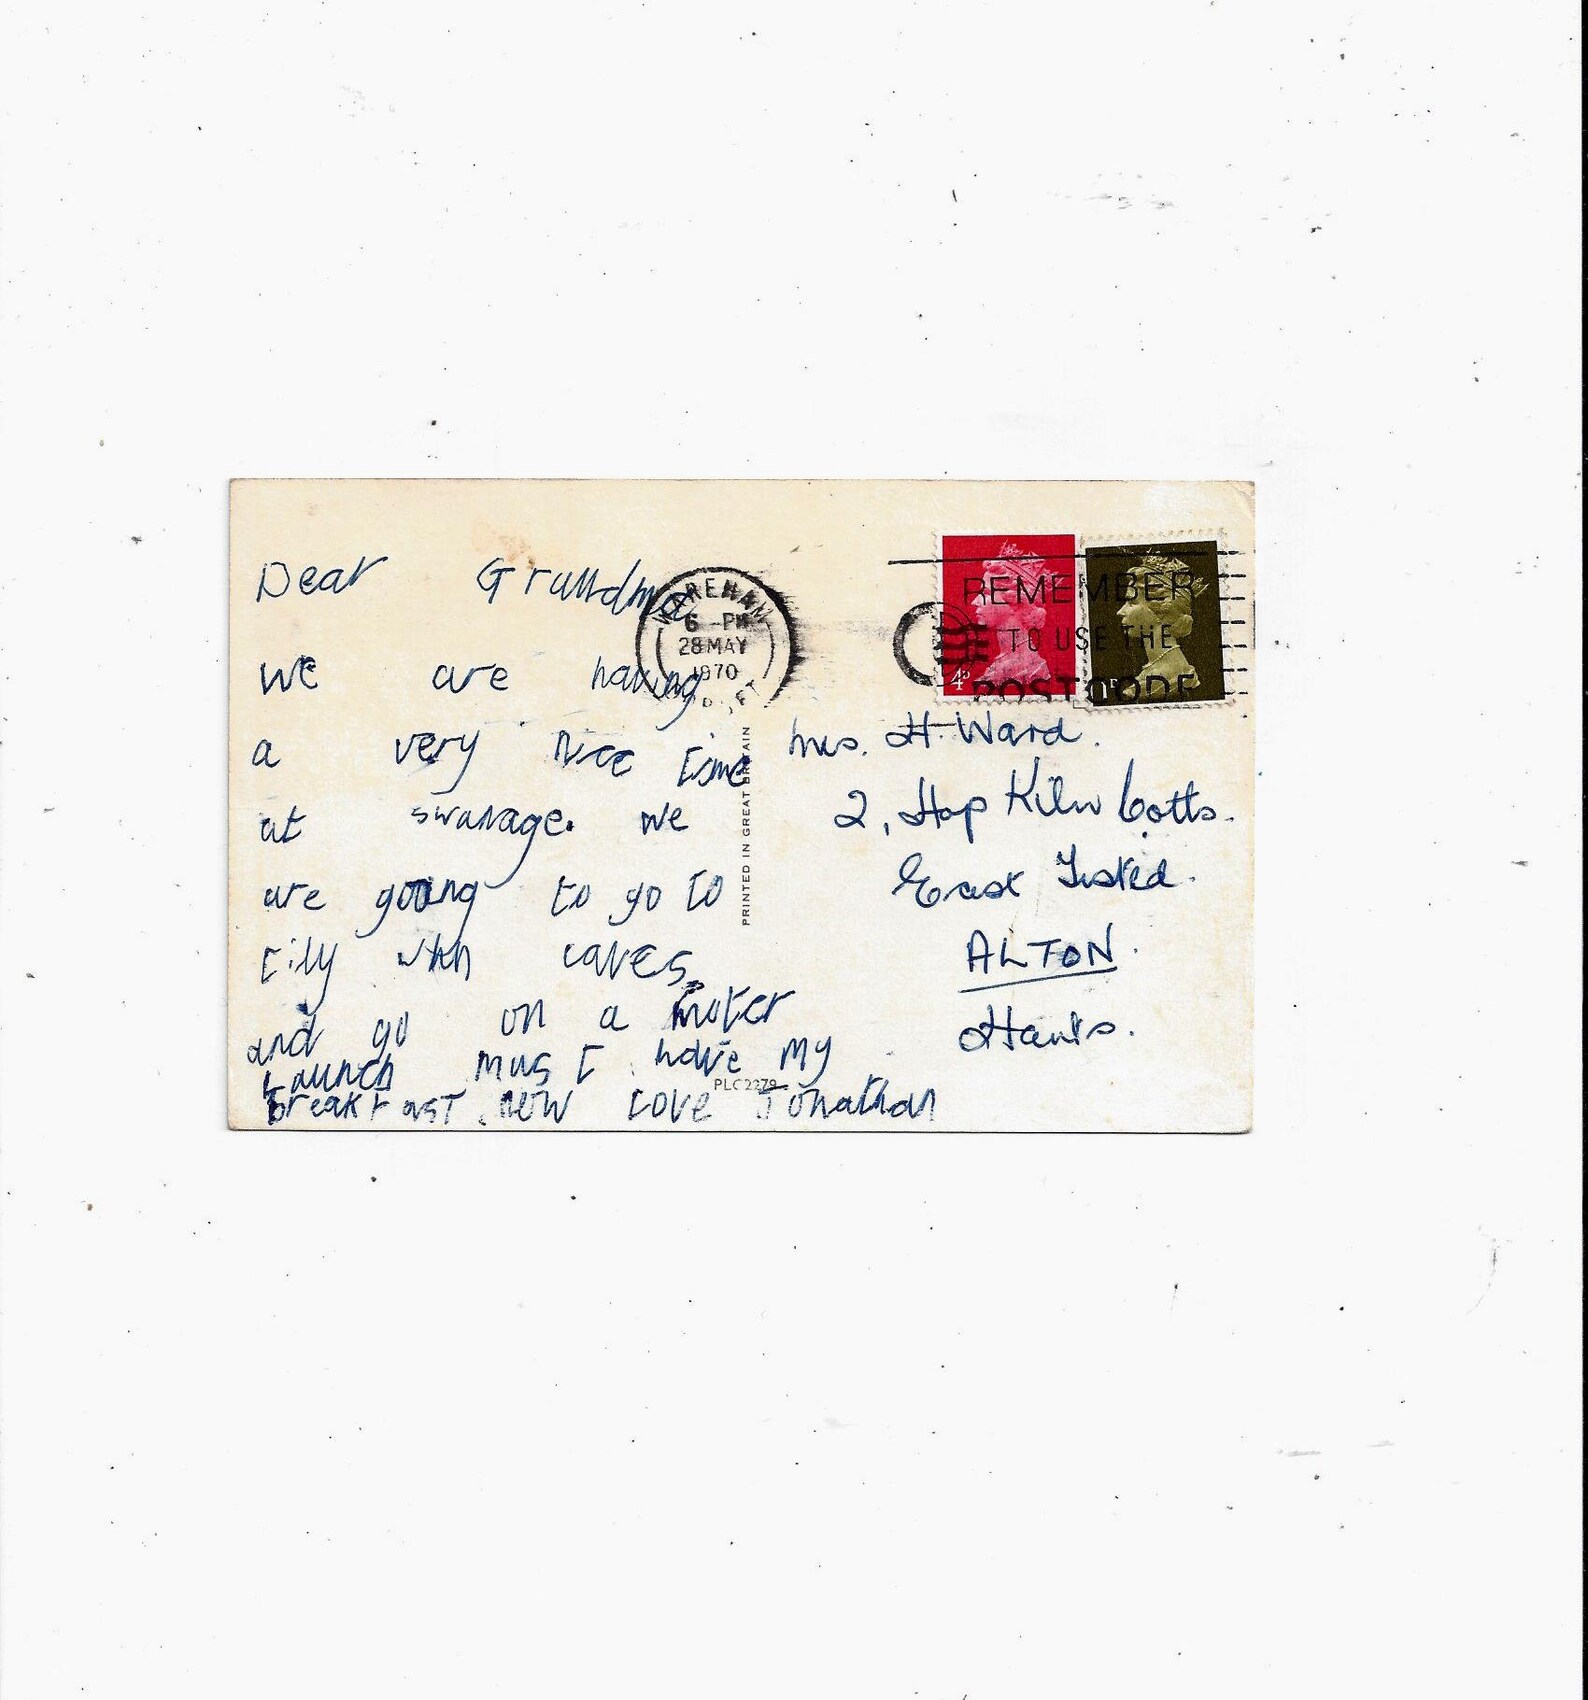 Dear Grandma
we are having
a very nice time
at swanage. we
are going to go to
tily whn caves
and go on a moter
Launch mus I have my
breakfast now love Jonathan
WAREHAM
6 -PM
28 MAY
1970
REMEMBER
TO USE THE
POSTCODE
4D
1D
PRINTED IN GREAT BRITAIN
Mrs. H. Ward.
2, Hop Kiln Cotts.
East Tisted.
ALTON.
Hants.
PLC2279